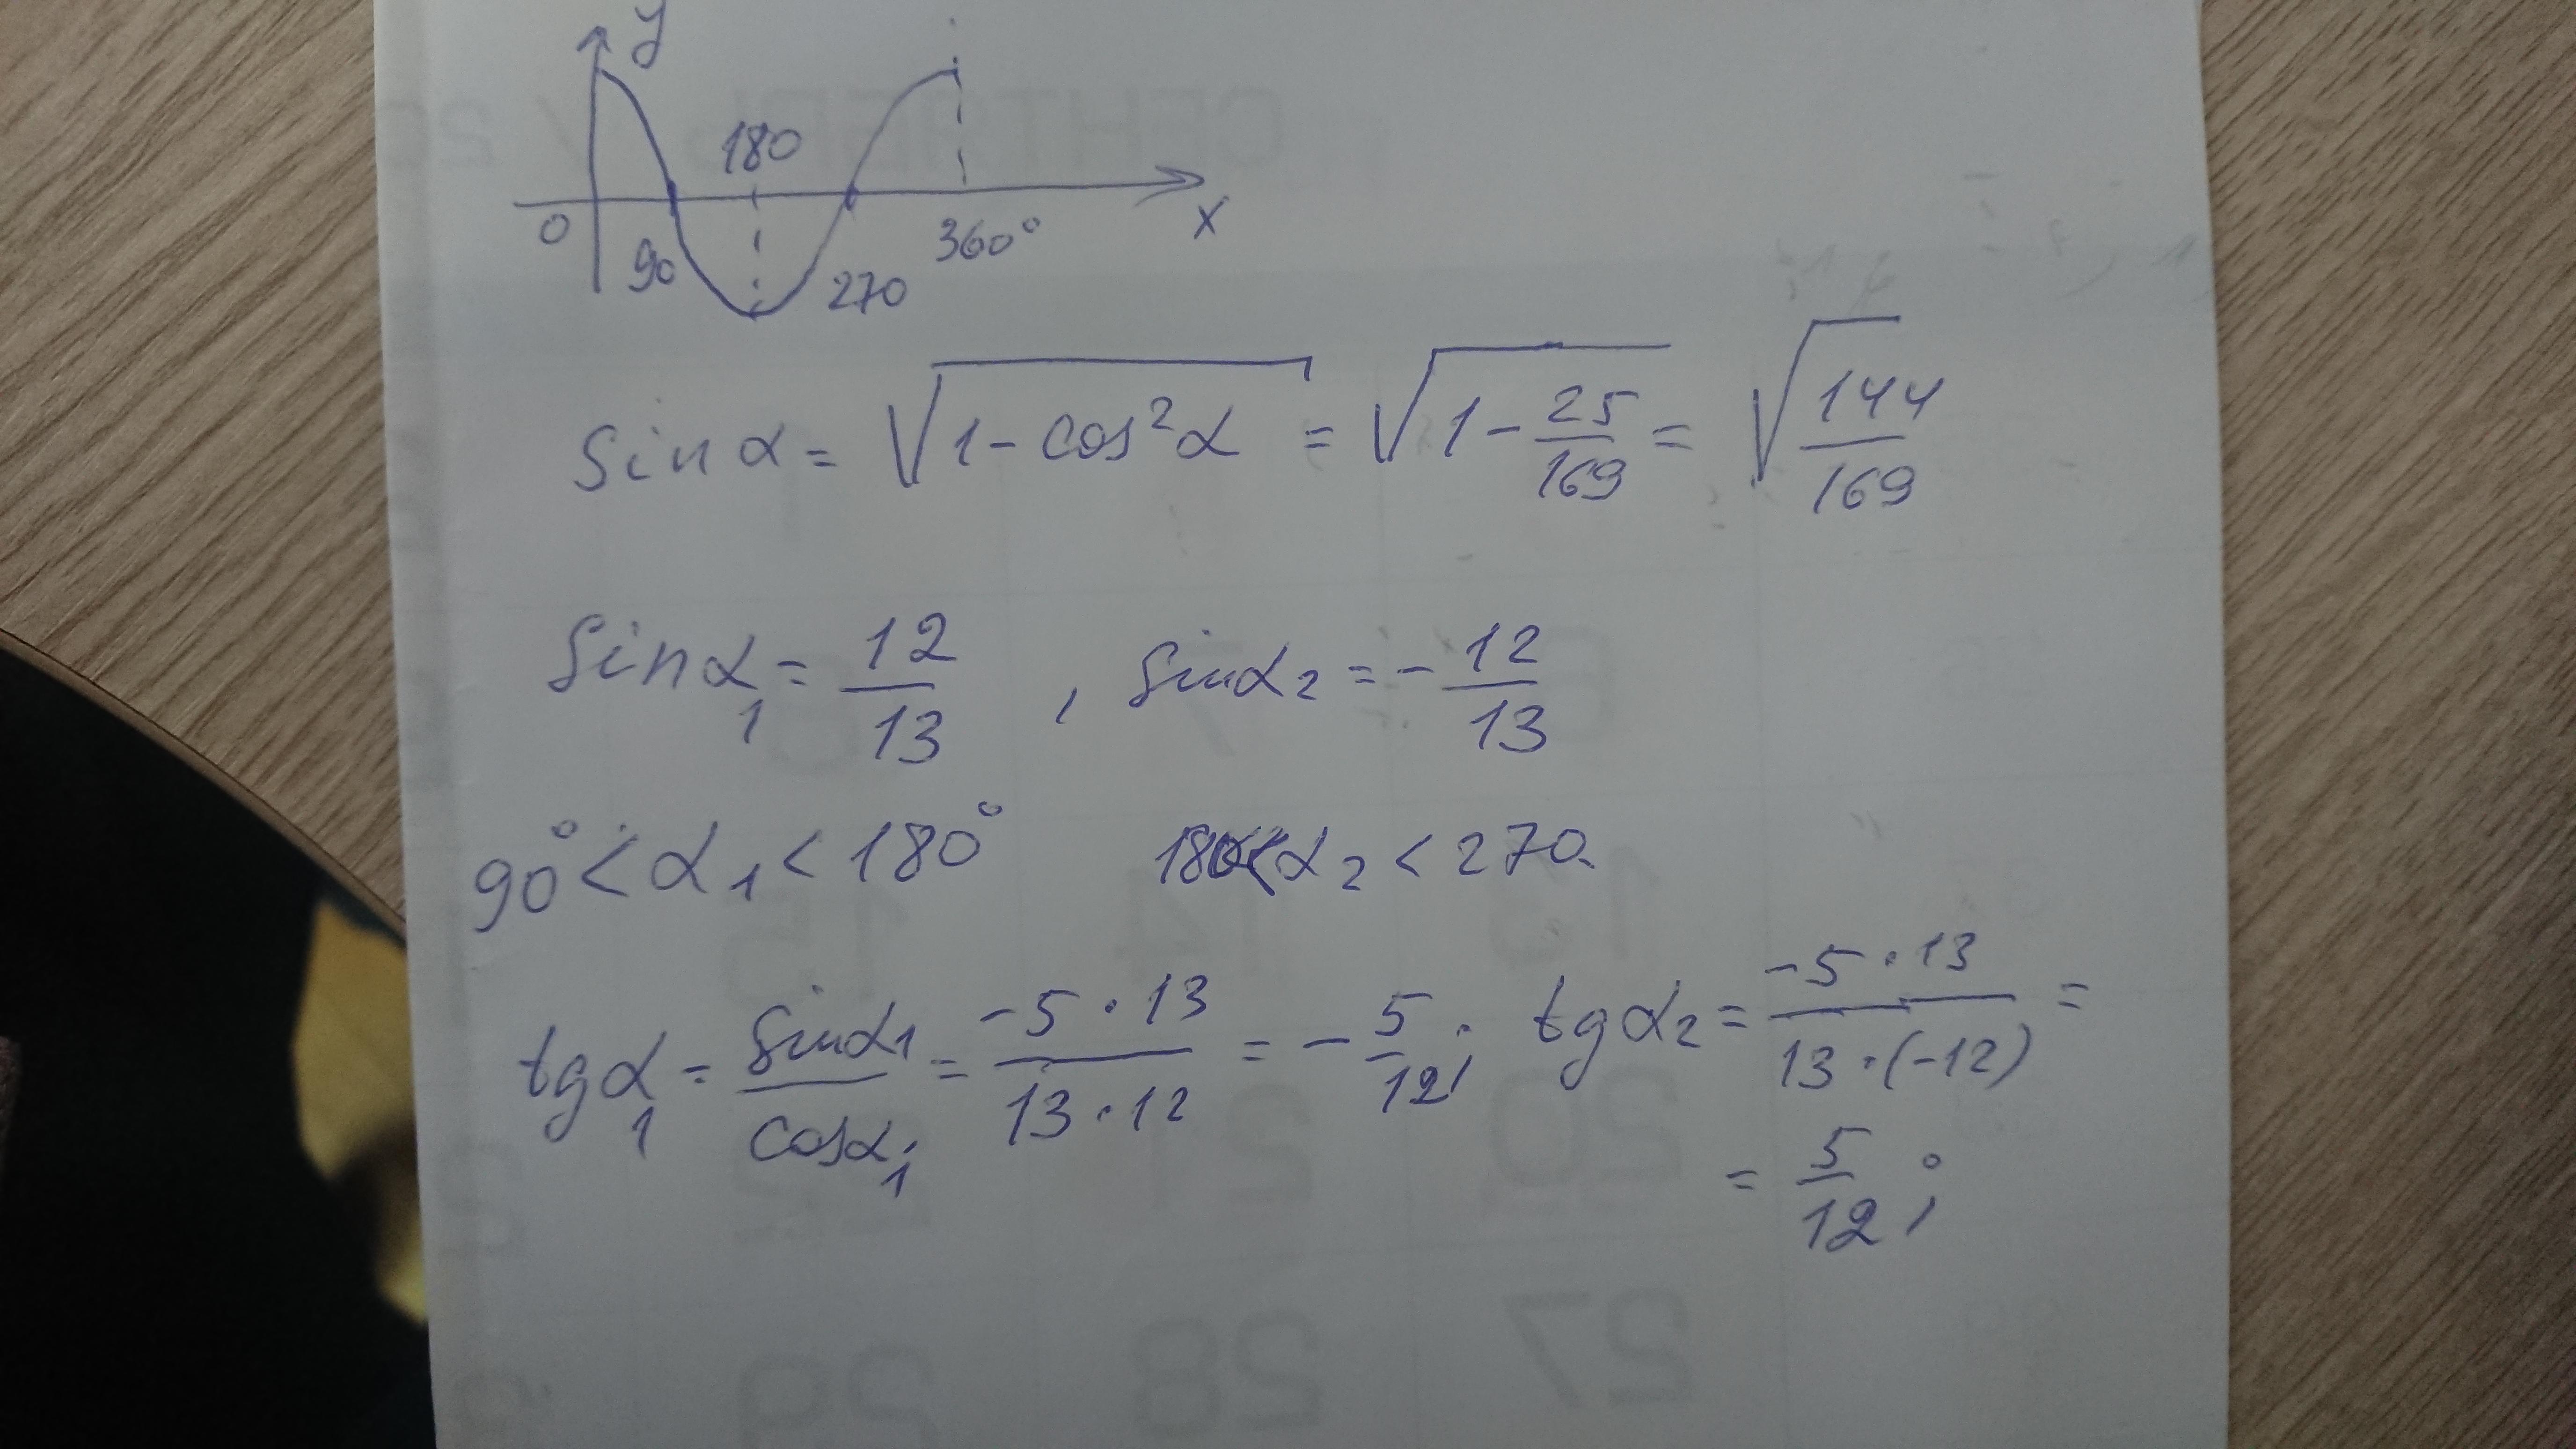 y
180
0 90 270 360° x
sin α = √(1 - cos²α) = √(1 - 25/169) = √(144/169)
sin α₁ = 12/13 , sin α₂ = - 12/13
90° < α₁ < 180° 180 < α₂ < 270.
tg α₁ = sin α₁ / cos α₁ = -5 · 13 / 13 · 12 = - 5/12; tg α₂ = -5 · 13 / 13 · (-12) =
= 5/12 ;